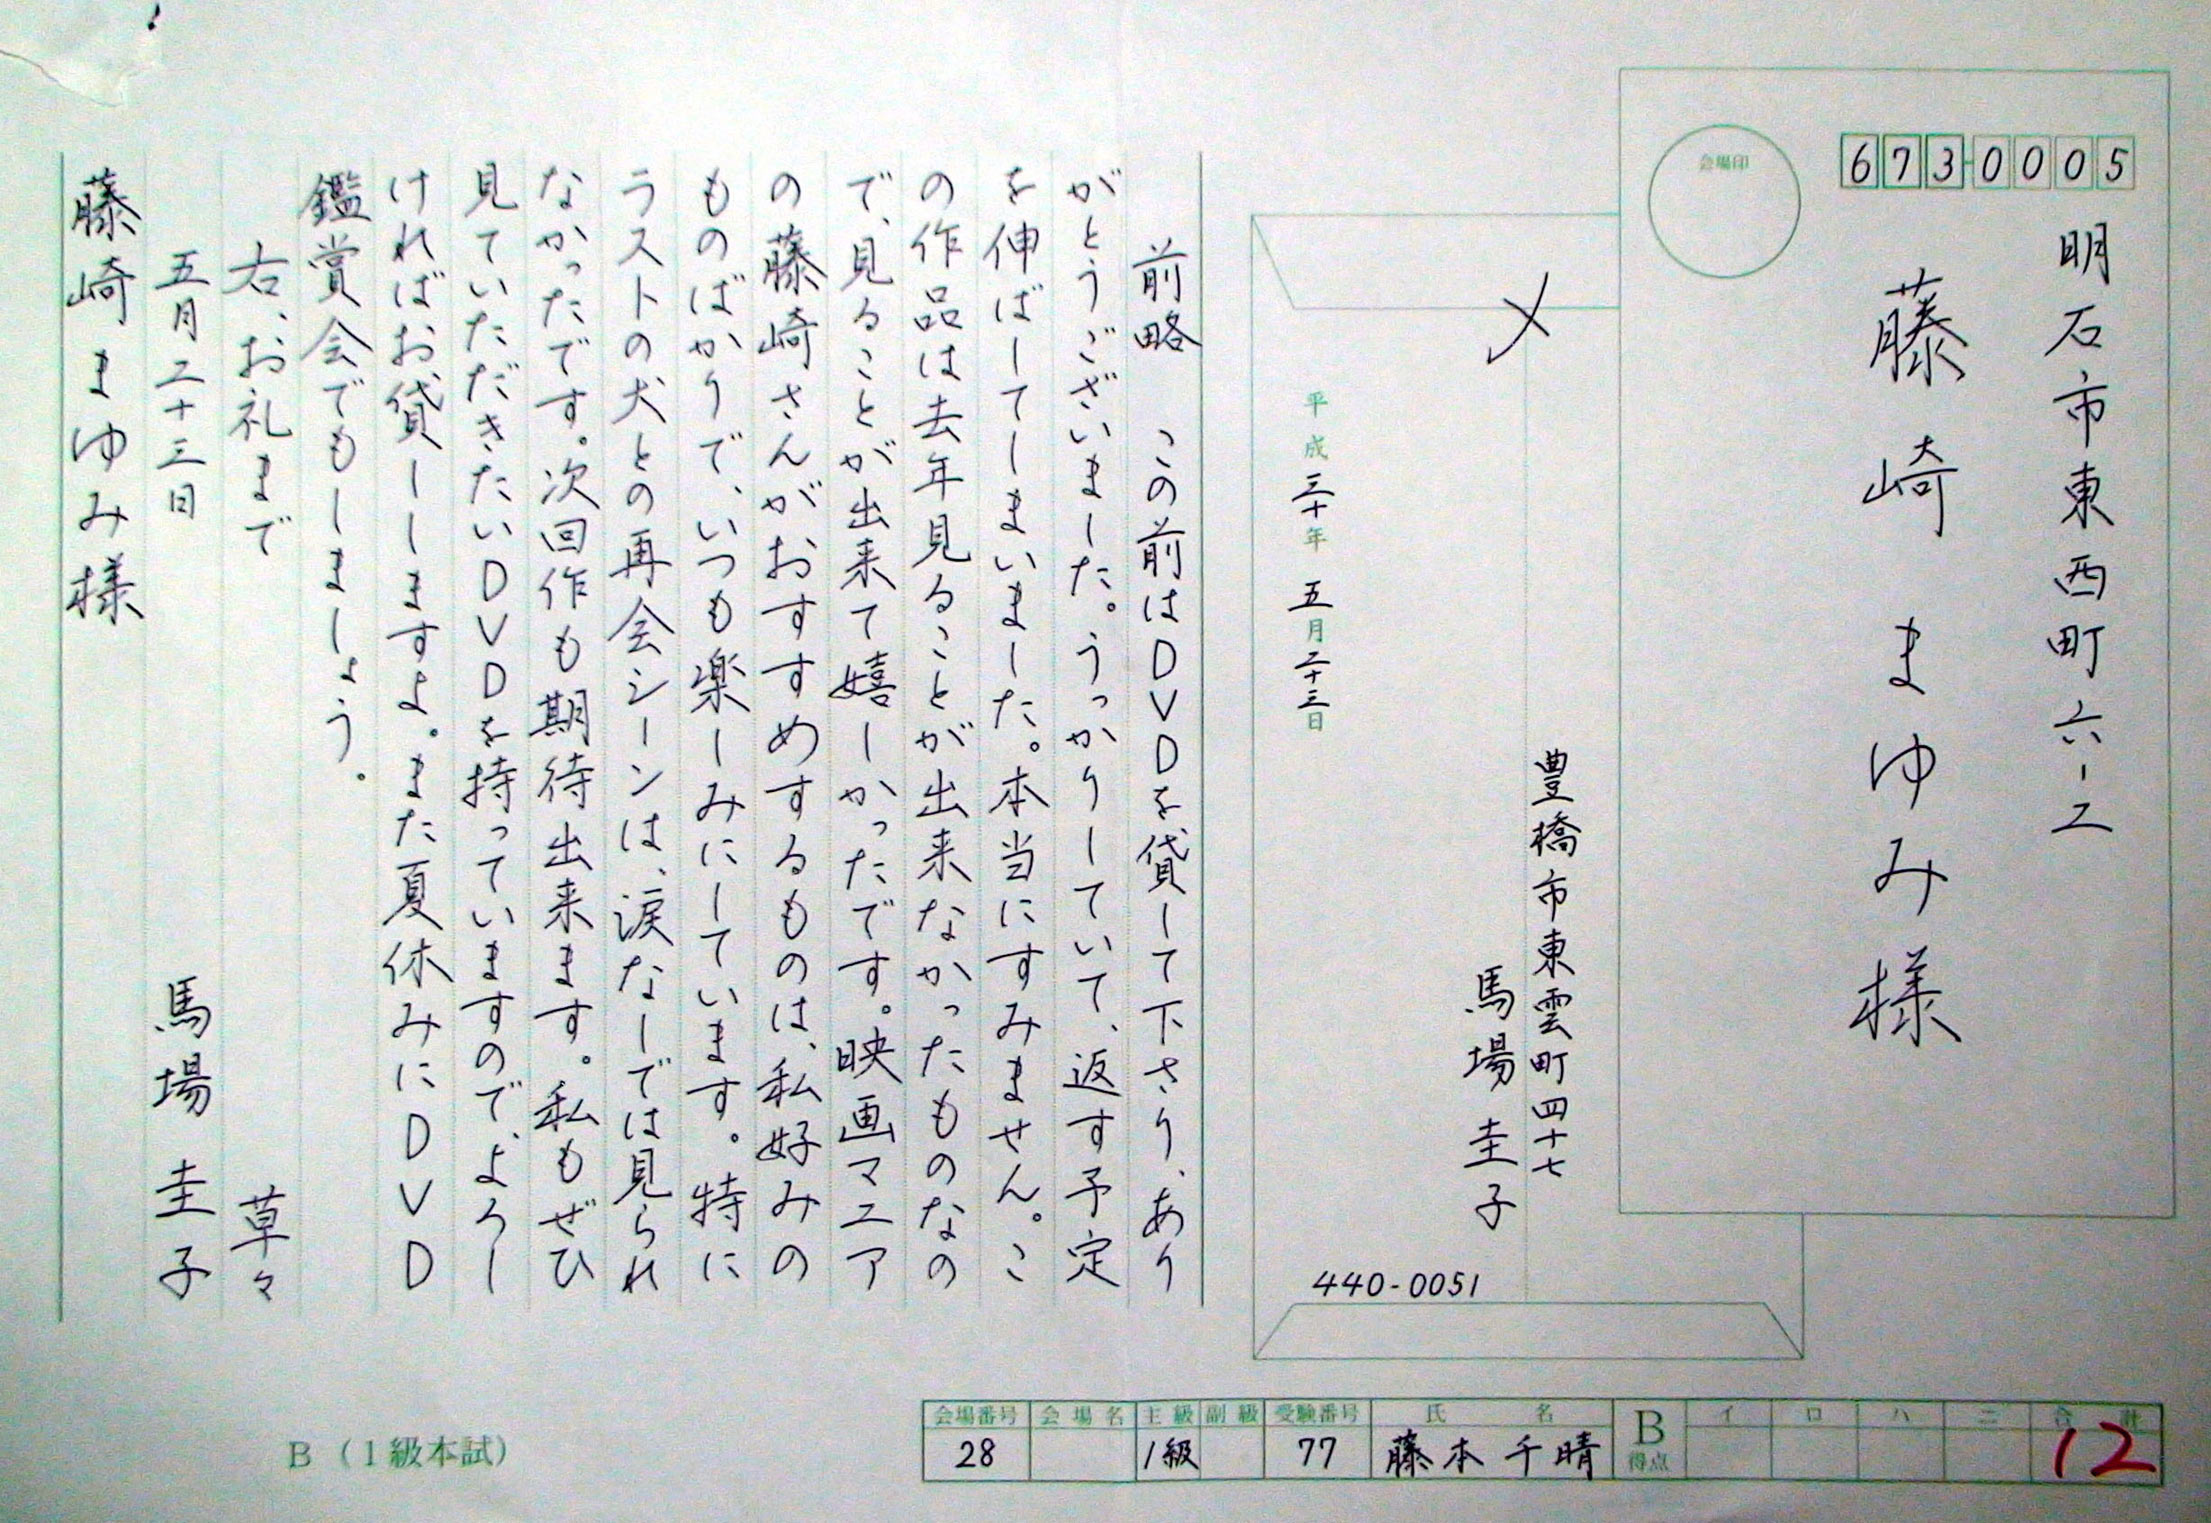 673-0005
明石市東西町六-二
藤崎まゆみ様
会場印
〆
豊橋市東雲町四十七
馬場圭子
440-0051
平成三十年五月二十三日
前略 この前はDVDを貸して下さり、あり
がとうございました。うっかりしていて、返す予定
を伸ばしてしまいました。本当にすみません。こ
の作品は去年見ることが出来なかったものなの
で、見ることが出来て嬉しかったです。映画マニア
の藤崎さんがおすすめするものは、私好みの
ものばかりで、いつも楽しみにしています。特に
ラストの犬との再会シーンは、涙なしでは見られ
なかったです。次回作も期待出来ます。私もぜひ
見ていただきたいDVDを持っていますので、よろし
ければお貸ししますよ。また夏休みにDVD
鑑賞会でもしましょう。
右、お礼まで 草々
五月二十三日 馬場圭子
藤崎まゆみ様
B（1級本試）
会場番号 会場名 主級 副級 受験番号 氏名 B得点 イ ロ ハ ニ 合計
28 1級 77 藤本千晴 12